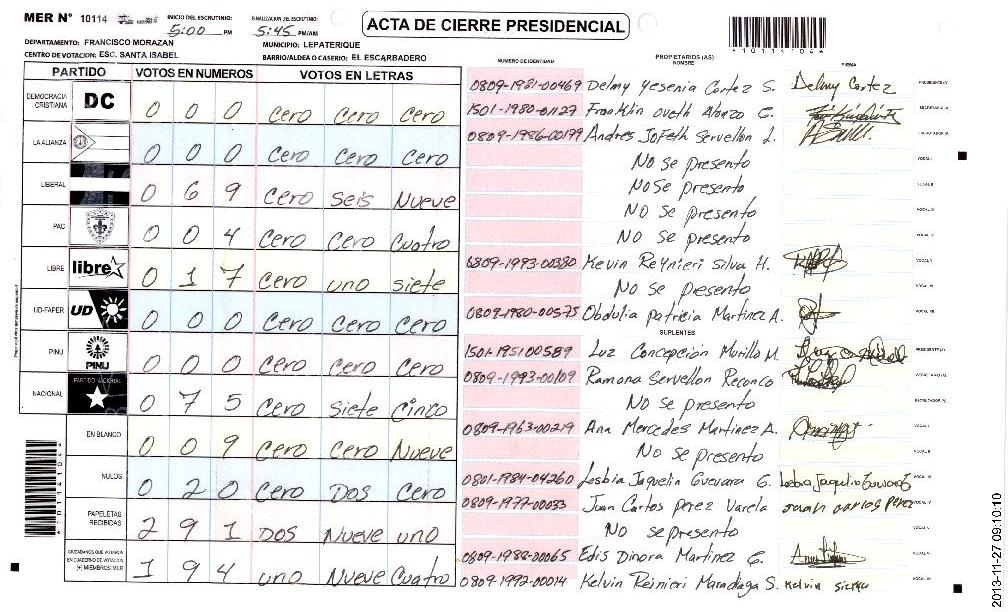 MER N° 10114
INICIO DEL ESCRUTINIO: 5:00 PM
FINALIZACION DEL ESCRUTINIO: 5:45 PM/AM
ACTA DE CIERRE PRESIDENCIAL
DEPARTAMENTO: FRANCISCO MORAZAN
MUNICIPIO: LEPATERIQUE
CENTRO DE VOTACION: ESC. SANTA ISABEL
BARRIO/ALDEA O CASERIO: EL ESCARBADERO
PARTIDO VOTOS EN NUMEROS VOTOS EN LETRAS
DEMOCRACIA CRISTIANA DC 0 0 0 Cero Cero Cero
LA ALIANZA 0 0 0 Cero Cero Cero
LIBERAL 0 6 9 Cero Seis Nueve
PAC 0 0 4 Cero Cero Cuatro
LIBRE libre 0 1 7 Cero uno siete
UD-FAPER UD 0 0 0 Cero Cero Cero
PINU PINU 0 0 0 Cero Cero Cero
NACIONAL PARTIDO NACIONAL 0 7 5 Cero Siete Cinco
EN BLANCO 0 0 9 Cero Cero Nueve
NULOS 0 2 0 Cero Dos Cero
PAPELETAS RECIBIDAS 2 9 1 Dos Nueve uno
CIUDADANOS QUE VOTARON EN CUADERNO DE VOTACION (+) MIEMBROS MER 1 9 4 uno Nueve Cuatro
NUMERO DE IDENTIDAD PROPIETARIOS (AS) NOMBRE FIRMA
0809-1981-00469 Delmy Yesenia Cortez S. Delmy Cortez PRESIDENTE (A)
1501-1980-01129 Franklin SECRETARIO (A)
0809-1986-00199 Andres Jofeth Servellon L. ESCRUTADOR (A)
No se presento VOCAL I
No se presento VOCAL II
No se presento VOCAL III
No se presento VOCAL IV
0809-1993-00380 Kevin Reynieri Silva H. VOCAL V
No se pesento VOCAL VI
0809-1980-00575 Obdulia patricia Martinez A. VOCAL VII
SUPLENTES
1501-1951 00589 Luz Concepción Murillo M. PRESIDENTE (A)
0809-1993-00109 Ramona Servellon Reconco SECRETARIO (A)
No se presento ESCRUTADOR (A)
0809-1963-00219 Ana Mercedes Martinez A. VOCAL I
No se presento VOCAL II
0801-1984-04260 Lesbia Jaquelin Guevara G. VOCAL III
0809-1977-00033 Juan Carlos perez Varela Juan carlos perez VOCAL IV
No se presento VOCAL V
0809-1988-00065 Edis Dinora Martinez G. VOCAL VI
0809-1992-00014 Kelvin Reinieri Maradiaga S. Kelvin VOCAL VII
*1011410A*
2013-11-27 09:10:10